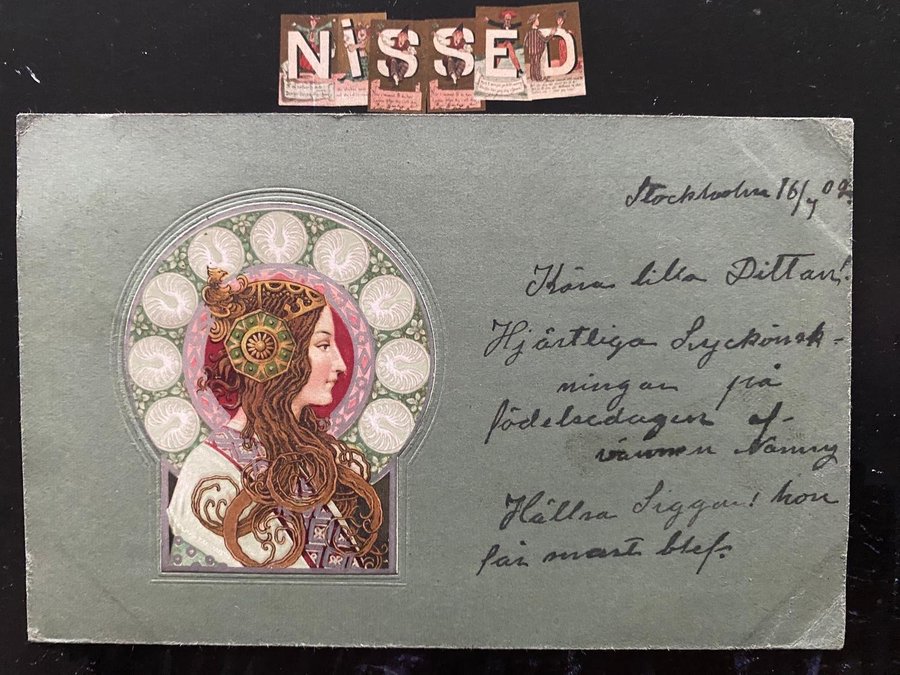 NiSSED
Stockholm 16/7 09.
Kära lilla Dittan!
Hjärtliga Lyckönsk-
ningar på
födelsedagen af
vännen Nanny
Hälsa Siggan! hon
får snart bref.